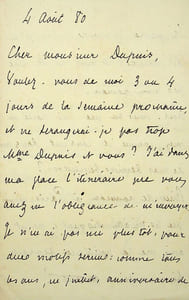 4 Août 80
Cher monsieur Dupuis,
Voulez-vous de moi 3 ou 4
jours de la semaine prochaine,
et ne dérangerai-je pas trop
Mme Dupuis et vous ? J'ai dans
ma place l'itinéraire que vous
avez eu l'obligeance de m'envoyer.
Je n'irai pas plus tôt, pour
deux motifs sérieux : comme tous
les ans, ce juillet, anniversaire de